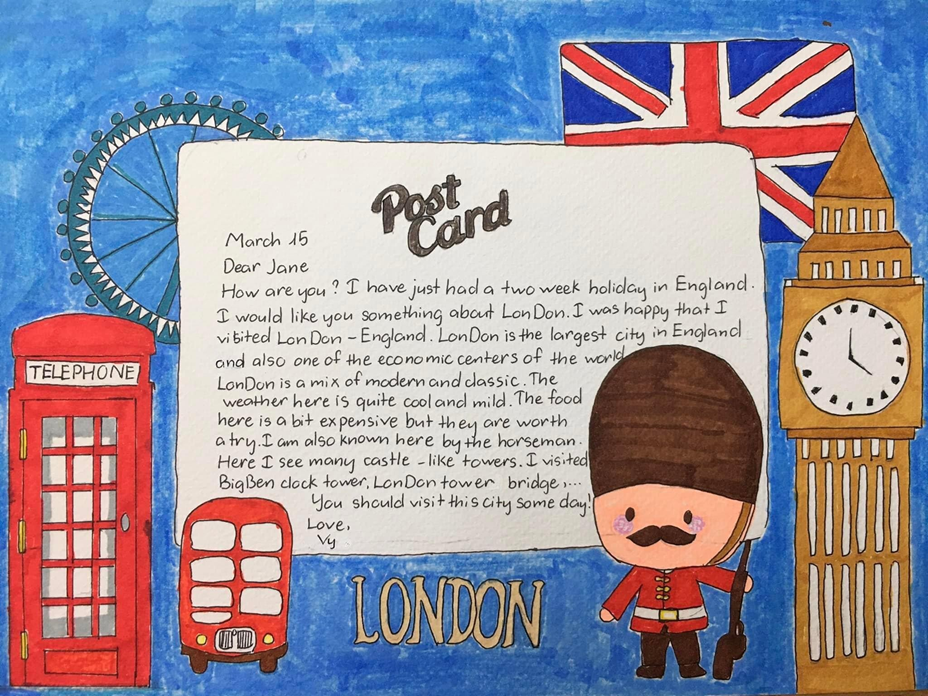 Post
Card
March 15
Dear Jane
How are you? I have just had a two week holiday in England.
I would like you something about LonDon. I was happy that I
visited LonDon - England. LonDon is the largest city in England
and also one of the economic centers of the world
LonDon is a mix of modern and classic. The
weather here is quite cool and mild. The food
here is a bit expensive but they are worth
a try. I am also known here by the horseman.
Here I see many castle - like towers. I visited
BigBen clock tower, LonDon tower bridge,...
You should visit this city some day!
Love,
Vy
TELEPHONE
LONDON